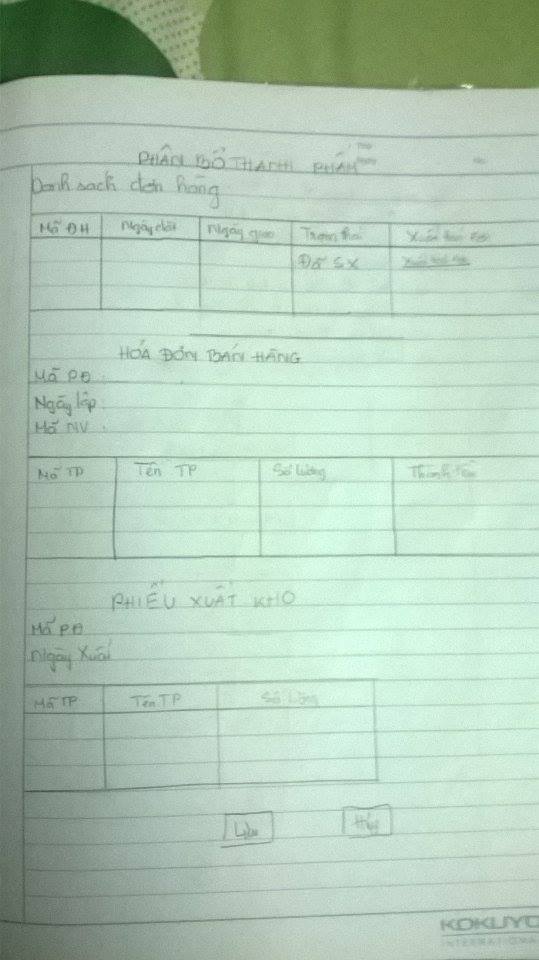 PHÂN BỔ THÀNH PHẨM
Danh sách đơn hàng
Mã ĐH Ngày đặt Ngày giao Trạng thái
Đã SX
HÓA ĐƠN BÁN HÀNG
Mã PĐ:
Ngày lập:
Mã NV:
Mã TP Tên TP Số lượng Thành tiền
PHIẾU XUẤT KHO
Mã PĐ
Ngày xuất
Mã TP Tên TP Số lượng
Lưu Hủy
KOKUYO
INTERNATIONAL